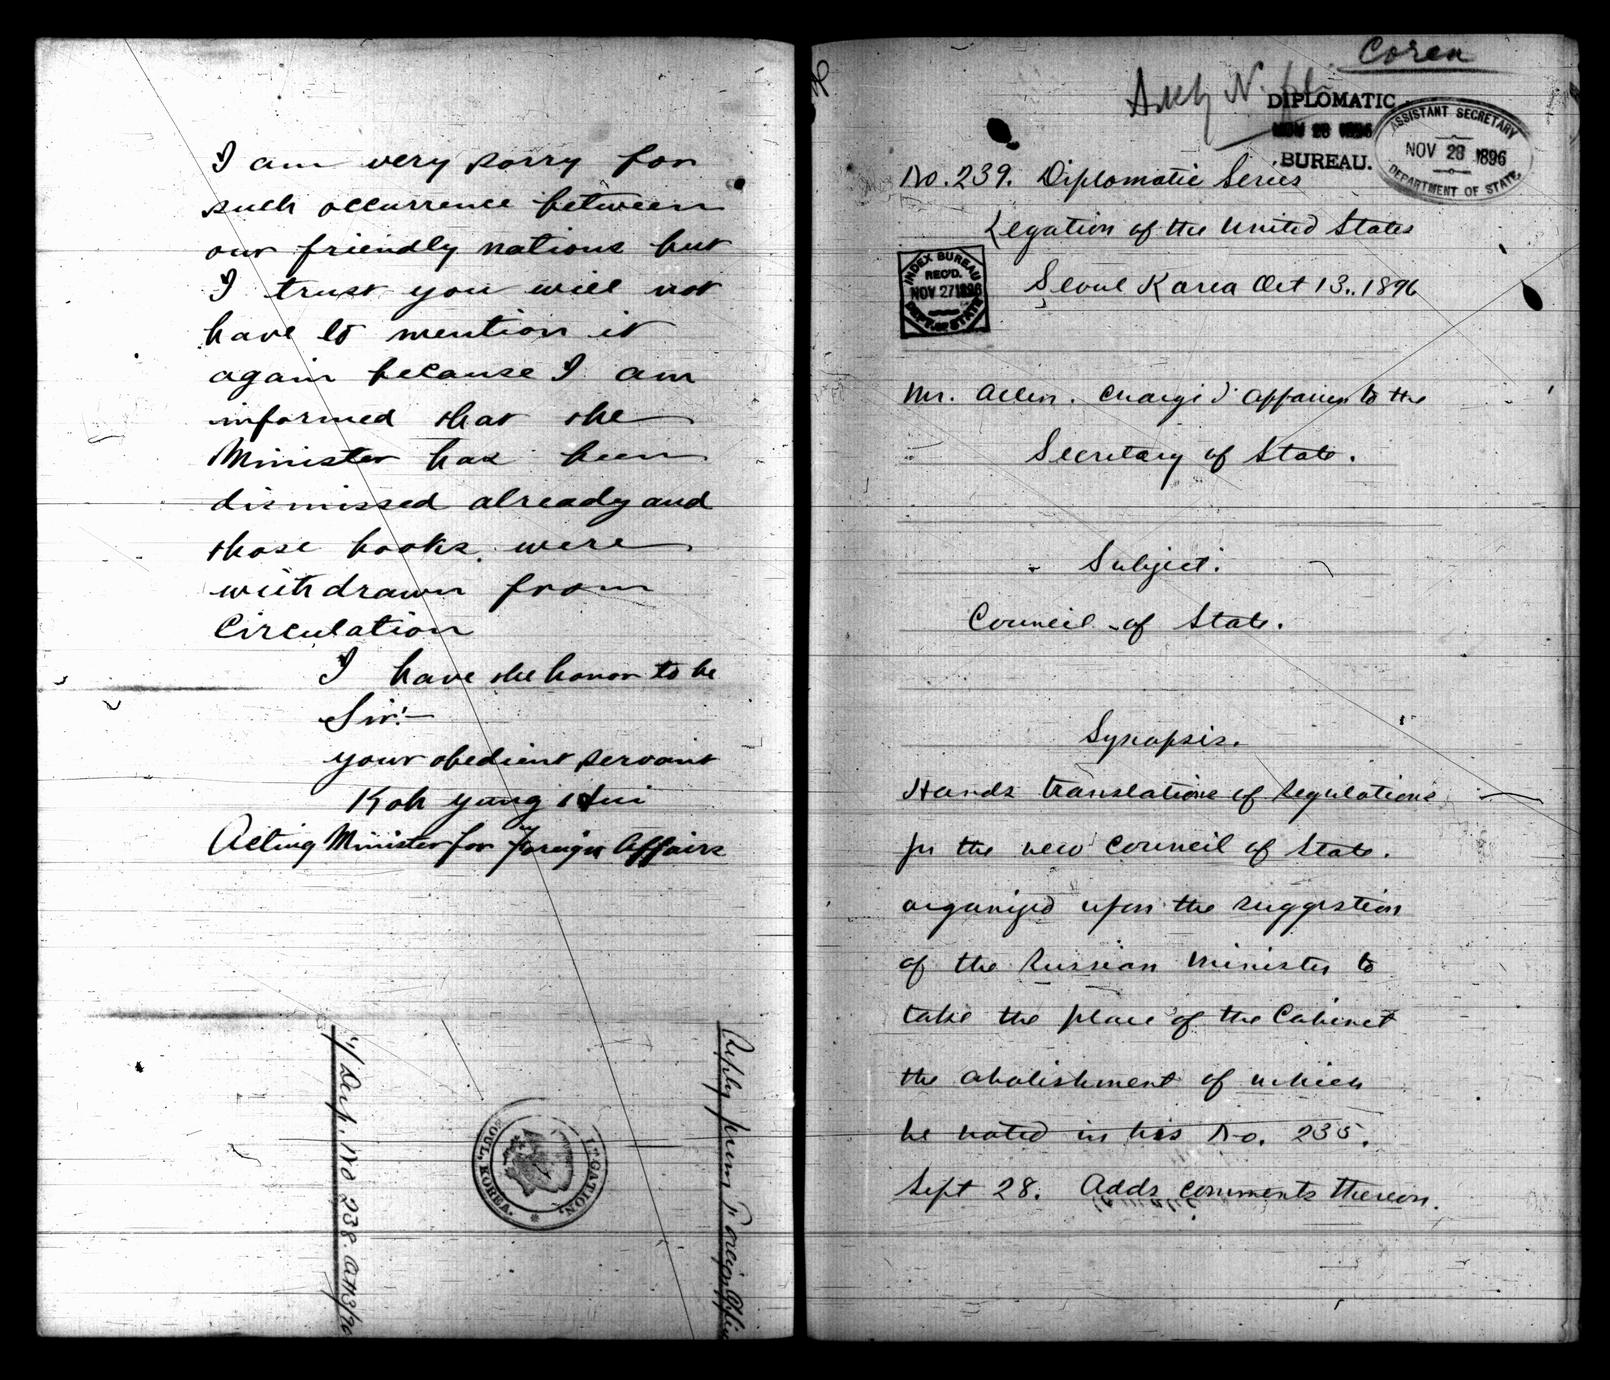 I am very sorry for
such occurrence between
our friendly nations but
I trust you will not
have to mention it
again because I am
informed that the
Minister has been
dismissed already and
those books were
withdrawn from
Circulation
I have the honor to be
Sir:—
your obedient servant
Koh yung Hui
Acting Minister for Foreign Affairs
Reply from Foreign Office
Desp. No 238. Oct 13/96
LEGATION,
SEOUL, KOREA.
Corea
DIPLOMATIC
NOV 28 1896
BUREAU.
ASSISTANT SECRETARY
NOV 28 1896
DEPARTMENT OF STATE
No. 239. Diplomatic Series
Legation of the United States
INDEX BUREAU
REC'D.
NOV 27 1896
DEPT. OF STATE
Seoul Korea Oct 13., 1896
Mr. Allen. Chargé d'Affaires to the
Secretary of State.
Subject:
Council of State.
Synopsis.
Hands translations of regulations
for the new Council of State.
organized upon the suggestion
of the Russian Minister to
take the place of the Cabinet
the abolishment of which
he noted in his No. 235.
Sept 28. Adds comments thereon.